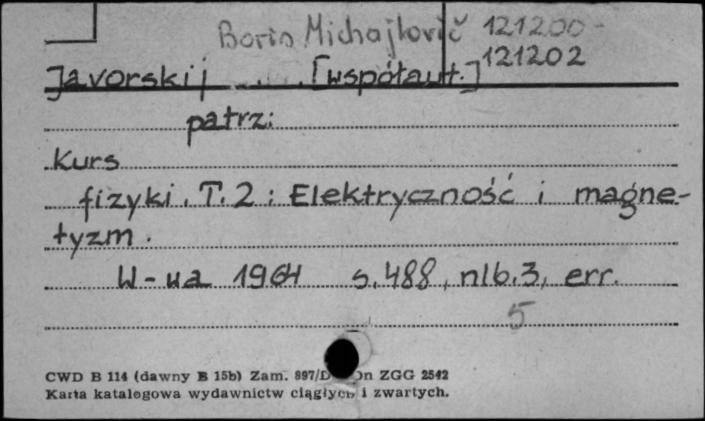 Boris Michajlovič 121200-
121202
Javorskij [współaut.]
patrz:
Kurs
fizyki. T. 2 : Elektryczność i magne-
tyzm.
W-wa 1964 s. 488, nlb. 3, err.
5
CWD B 114 (dawny B 15b) Zam. 897/D ZGG 2542
Karta katalogowa wydawnictw ciągłych i zwartych.